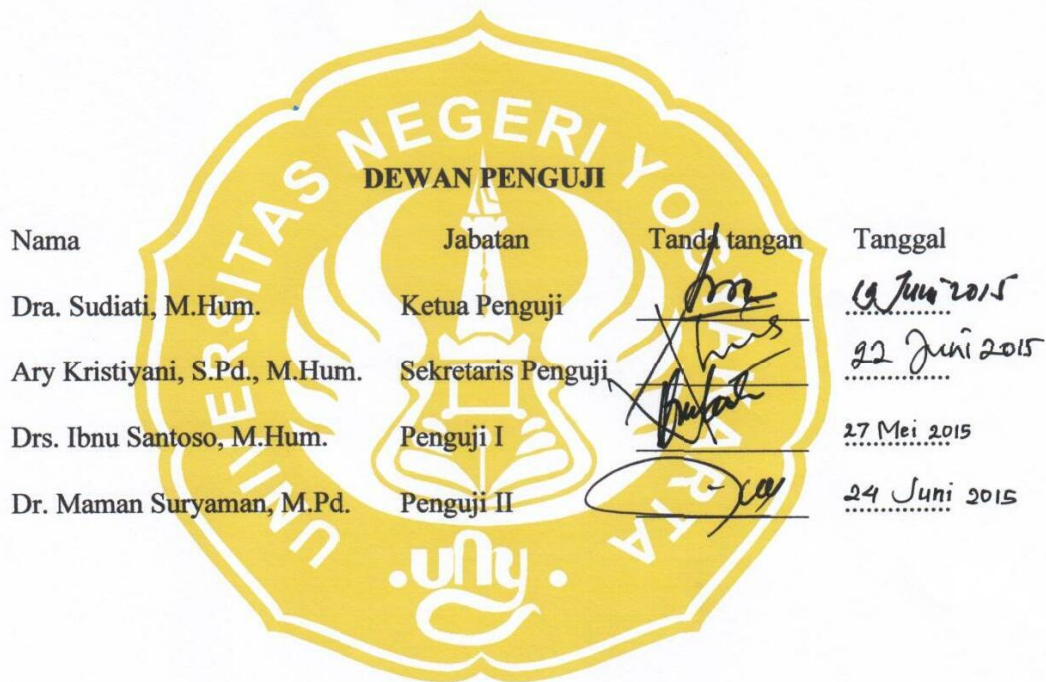 UNIVERSITAS NEGERI YOGYAKARTA
DEWAN PENGUJI
Nama Jabatan Tanda tangan Tanggal
Dra. Sudiati, M.Hum. Ketua Penguji Juni 2015
Ary Kristiyani, S.Pd., M.Hum. Sekretaris Penguji 22 Juni 2015
Drs. Ibnu Santoso, M.Hum. Penguji I 27 Mei 2015
Dr. Maman Suryaman, M.Pd. Penguji II 24 Juni 2015
uny